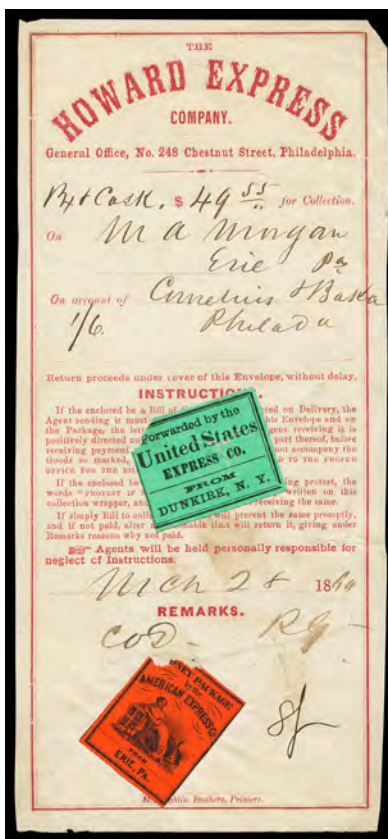 THE
HOWARD EXPRESS
COMPANY.
General Office, No. 248 Chestnut Street, Philadelphia.
Bx & Cask, $ 49 55 for Collection.
On M A Morgan
Erie Pa
On account of Cornelius & Baker
1/6. Philada
Return proceeds under cover of this Envelope, without delay.
INSTRUCTIONS.
If the enclosed be a Bill of on Delivery, the
Agent sending it must this Envelope and on
the Package, the gent receiving it is
positively directed no part thereof, before
receiving payment not accompany the
goods so marked, TO THE PROPER
OFFICE FOR THE
If the enclosed be ing protest, the
words "PROTEST IF written on this
collection wrapper, and receiving the same.
If simply Bill to coll will present the same promptly,
and if not paid, after able time will return it, giving under
Remarks reasons why not paid.
Agents will be held personally responsible for
neglect of Instructions.
Forwarded by the
United States
EXPRESS CO.
FROM
DUNKIRK, N. Y.
Mch 28 1860
REMARKS.
COD
MONEY PACKAGE
by the
AMERICAN EXPRESS Co.
FROM
ERIE, PA.
Brothers, Printers.